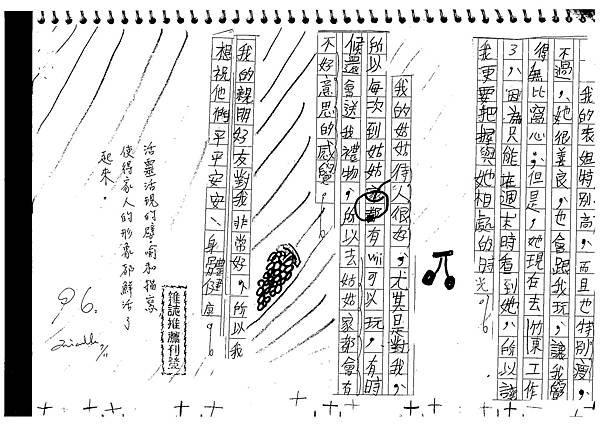 我的表姐特別高，而且也特別瘦，
不過，她很善良，也會跟我玩，讓我覺
得無比窩心，但是，她現在去竹東工作
了，因為只能在週末時看到她，所以讓
我更要把握與她相處的時光。
我的姑姑待人很好，尤其是對我，
所以每次到姑姑家都有wii可以玩，有時
候還會送我禮物，所以去姑姑家都會有
不好意思的感覺。
我的親朋好友對我非常好，所以我
想祝他們平平安安、身體健康。
活靈活現的譬喻和描寫
使得家人的形象都鮮活了
起來。
雜誌推薦刊登
96.